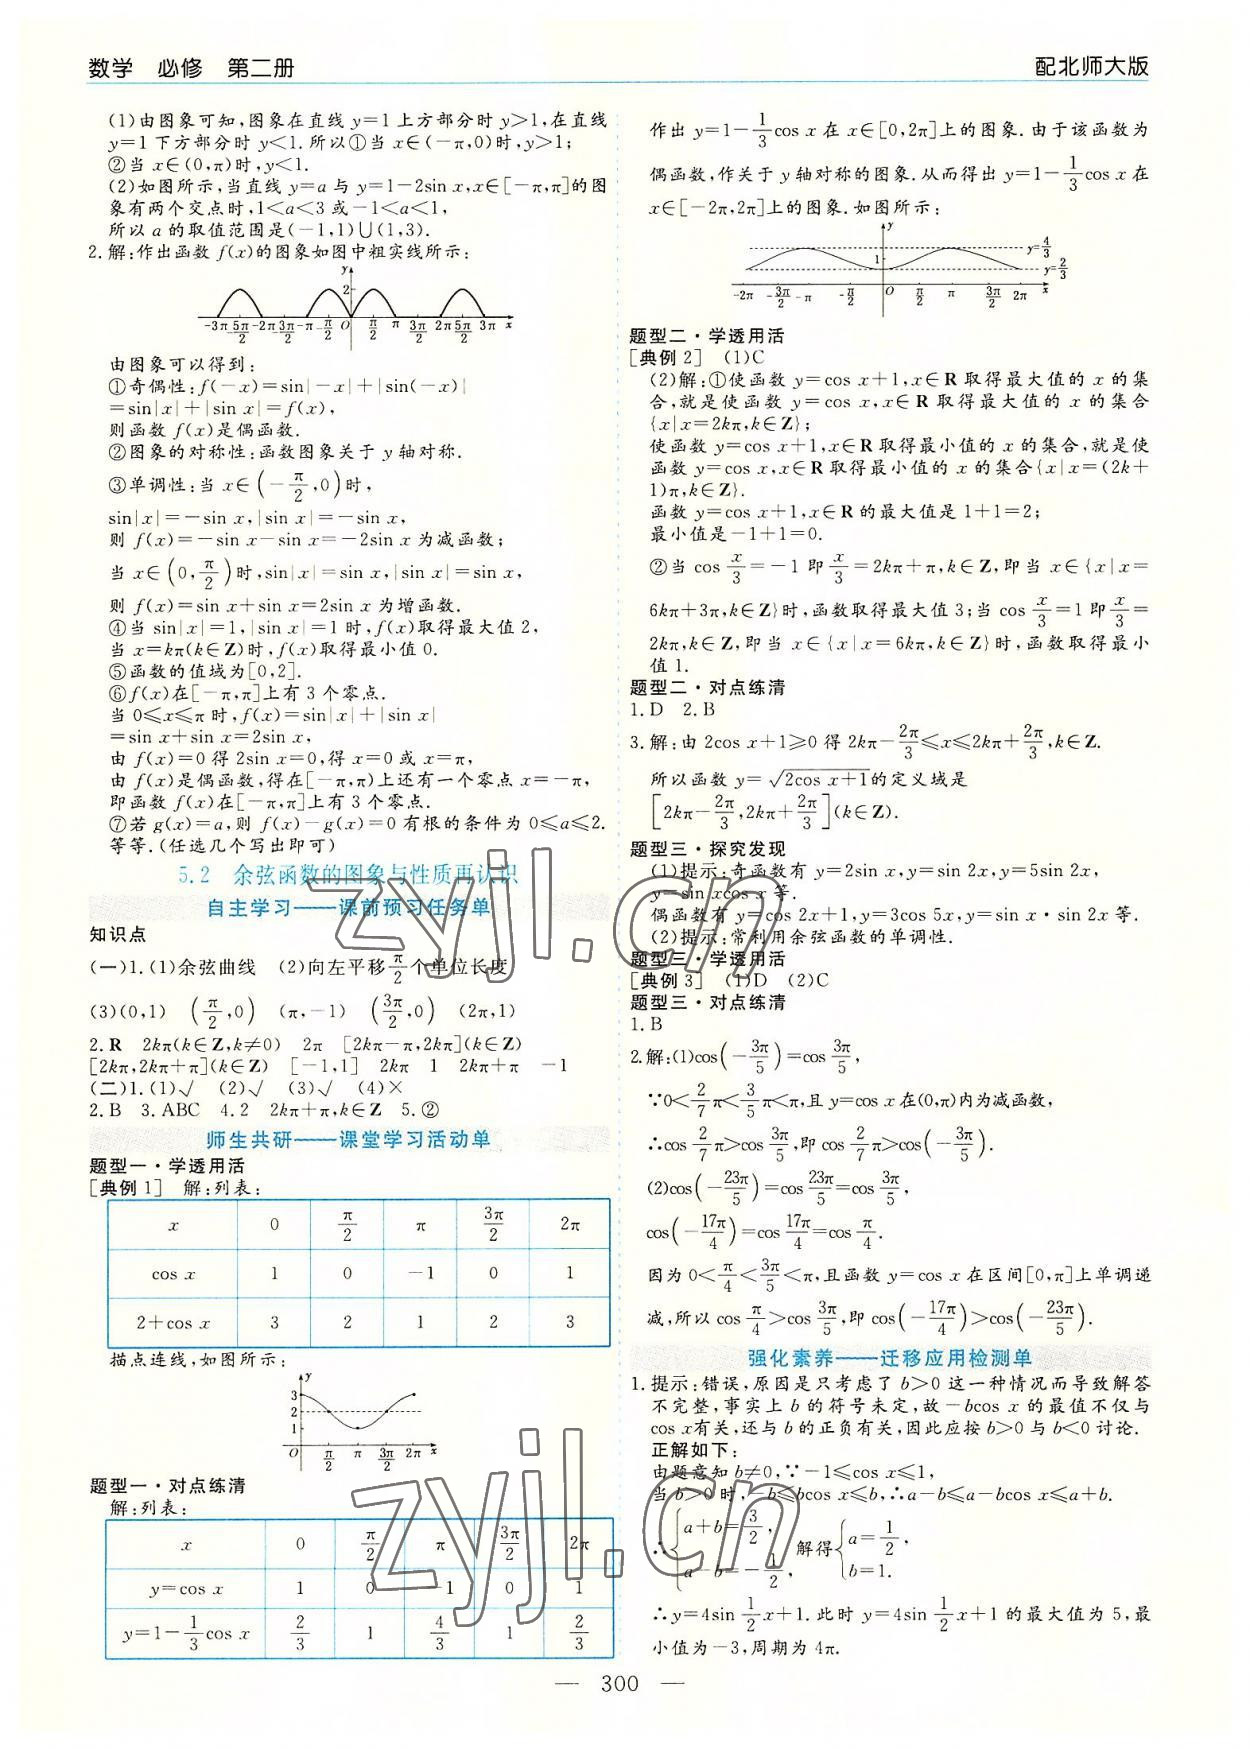 数学 必修 第二册
配北师大版
(1)由图象可知,图象在直线 y=1 上方部分时 y>1,在直线
y=1 下方部分时 y<1. 所以①当 x∈(-π,0)时,y>1;
②当 x∈(0,π)时,y<1.
(2)如图所示,当直线 y=a 与 y=1-2sin x,x∈[-π,π]的图
象有两个交点时,1<a<3 或-1<a<1,
所以 a 的取值范围是(-1,1)∪(1,3).
2. 解:作出函数 f(x)的图象如图中粗实线所示:
y
2
-3π -5π/2 -2π -3π/2 -π -π/2 O π/2 π 3π/2 2π 5π/2 3π x
由图象可以得到:
①奇偶性:f(-x)=sin|-x|+|sin(-x)|
=sin|x|+|sin x|=f(x),
则函数 f(x)是偶函数.
②图象的对称性:函数图象关于 y 轴对称.
③单调性:当 x∈(-π/2,0)时,
sin|x|=-sin x,|sin x|=-sin x,
则 f(x)=-sin x-sin x=-2sin x 为减函数;
当 x∈(0,π/2)时,sin|x|=sin x,|sin x|=sin x,
则 f(x)=sin x+sin x=2sin x 为增函数.
④当 sin|x|=1,|sin x|=1 时,f(x)取得最大值 2,
当 x=kπ(k∈Z)时,f(x)取得最小值 0.
⑤函数的值域为[0,2].
⑥f(x)在[-π,π]上有 3 个零点.
当 0≤x≤π 时,f(x)=sin|x|+|sin x|
=sin x+sin x=2sin x,
由 f(x)=0 得 2sin x=0,得 x=0 或 x=π,
由 f(x)是偶函数,得在[-π,π)上还有一个零点 x=-π,
即函数 f(x)在[-π,π]上有 3 个零点.
⑦若 g(x)=a,则 f(x)-g(x)=0 有根的条件为 0≤a≤2.
等等.(任选几个写出即可)
5.2 余弦函数的图象与性质再认识
自主学习——课前预习任务单
知识点
(一)1.(1)余弦曲线 (2)向左平移π/2个单位长度
(3)(0,1) (π/2,0) (π,-1) (3π/2,0) (2π,1)
2. R 2kπ(k∈Z,k≠0) 2π [2kπ-π,2kπ](k∈Z)
[2kπ,2kπ+π](k∈Z) [-1,1] 2kπ 1 2kπ+π -1
(二)1.(1)√ (2)√ (3)√ (4)×
2. B 3. ABC 4. 2 2kπ+π,k∈Z 5. ②
师生共研——课堂学习活动单
题型一·学透用活
[典例1] 解:列表:
x 0 π/2 π 3π/2 2π
cos x 1 0 -1 0 1
2+cos x 3 2 1 2 3
描点连线,如图所示:
y
3
2
1
O π/2 π 3π/2 2π x
题型一·对点练清
解:列表:
x 0 π/2 π 3π/2 2π
y=cos x 1 0 -1 0 1
y=1-1/3cos x 2/3 1 4/3 1 2/3
作出 y=1-1/3cos x 在 x∈[0,2π]上的图象. 由于该函数为
偶函数,作关于 y 轴对称的图象. 从而得出 y=1-1/3cos x 在
x∈[-2π,2π]上的图象. 如图所示:
y
y=4/3
1
y=2/3
-2π -3π/2 -π -π/2 O π/2 π 3π/2 2π x
题型二·学透用活
[典例2] (1)C
(2)解:①使函数 y=cos x+1,x∈R 取得最大值的 x 的集
合,就是使函数 y=cos x,x∈R 取得最大值的 x 的集合
{x|x=2kπ,k∈Z};
使函数 y=cos x+1,x∈R 取得最小值的 x 的集合,就是使
函数 y=cos x,x∈R 取得最小值的 x 的集合{x|x=(2k+
1)π,k∈Z}.
函数 y=cos x+1,x∈R 的最大值是 1+1=2;
最小值是-1+1=0.
②当 cos x/3=-1 即 x/3=2kπ+π,k∈Z,即当 x∈{x|x=
6kπ+3π,k∈Z}时,函数取得最大值 3;当 cos x/3=1 即 x/3=
2kπ,k∈Z,即当 x∈{x|x=6kπ,k∈Z}时,函数取得最小
值 1.
题型二·对点练清
1. D 2. B
3. 解:由 2cos x+1≥0 得 2kπ-2π/3≤x≤2kπ+2π/3,k∈Z.
所以函数 y=√(2cos x+1)的定义域是
[2kπ-2π/3,2kπ+2π/3](k∈Z).
题型三·探究发现
(1)提示:奇函数有 y=2sin x,y=sin 2x,y=5sin 2x,
y=sin xcos x 等.
偶函数有 y=cos 2x+1,y=3cos 5x,y=sin x·sin 2x 等.
(2)提示:常利用余弦函数的单调性.
题型三·学透用活
[典例3] (1)D (2)C
题型三·对点练清
1. B
2. 解:(1)cos(-3π/5)=cos 3π/5,
∵0<2/7π<3/5π<π,且 y=cos x 在(0,π)内为减函数,
∴cos 2/7π>cos 3π/5,即 cos 2/7π>cos(-3π/5).
(2)cos(-23π/5)=cos 23π/5=cos 3π/5,
cos(-17π/4)=cos 17π/4=cos π/4.
因为 0<π/4<3π/5<π,且函数 y=cos x 在区间[0,π]上单调递
减,所以 cos π/4>cos 3π/5,即 cos(-17π/4)>cos(-23π/5).
强化素养——迁移应用检测单
1. 提示:错误,原因是只考虑了 b>0 这一种情况而导致解答
不完整,事实上 b 的符号未定,故-bcos x 的最值不仅与
cos x有关,还与 b 的正负有关,因此应按 b>0 与 b<0 讨论.
正解如下:
由题意知 b≠0,∵-1≤cos x≤1,
当 b>0 时,-b≤bcos x≤b,∴a-b≤a-bcos x≤a+b.
∴{a+b=3/2, a-b=-1/2, 解得{a=1/2, b=1.
∴y=4sin 1/2x+1. 此时 y=4sin 1/2x+1 的最大值为 5,最
小值为-3,周期为 4π.
— 300 —
zyjl.cn
zyjl.cn